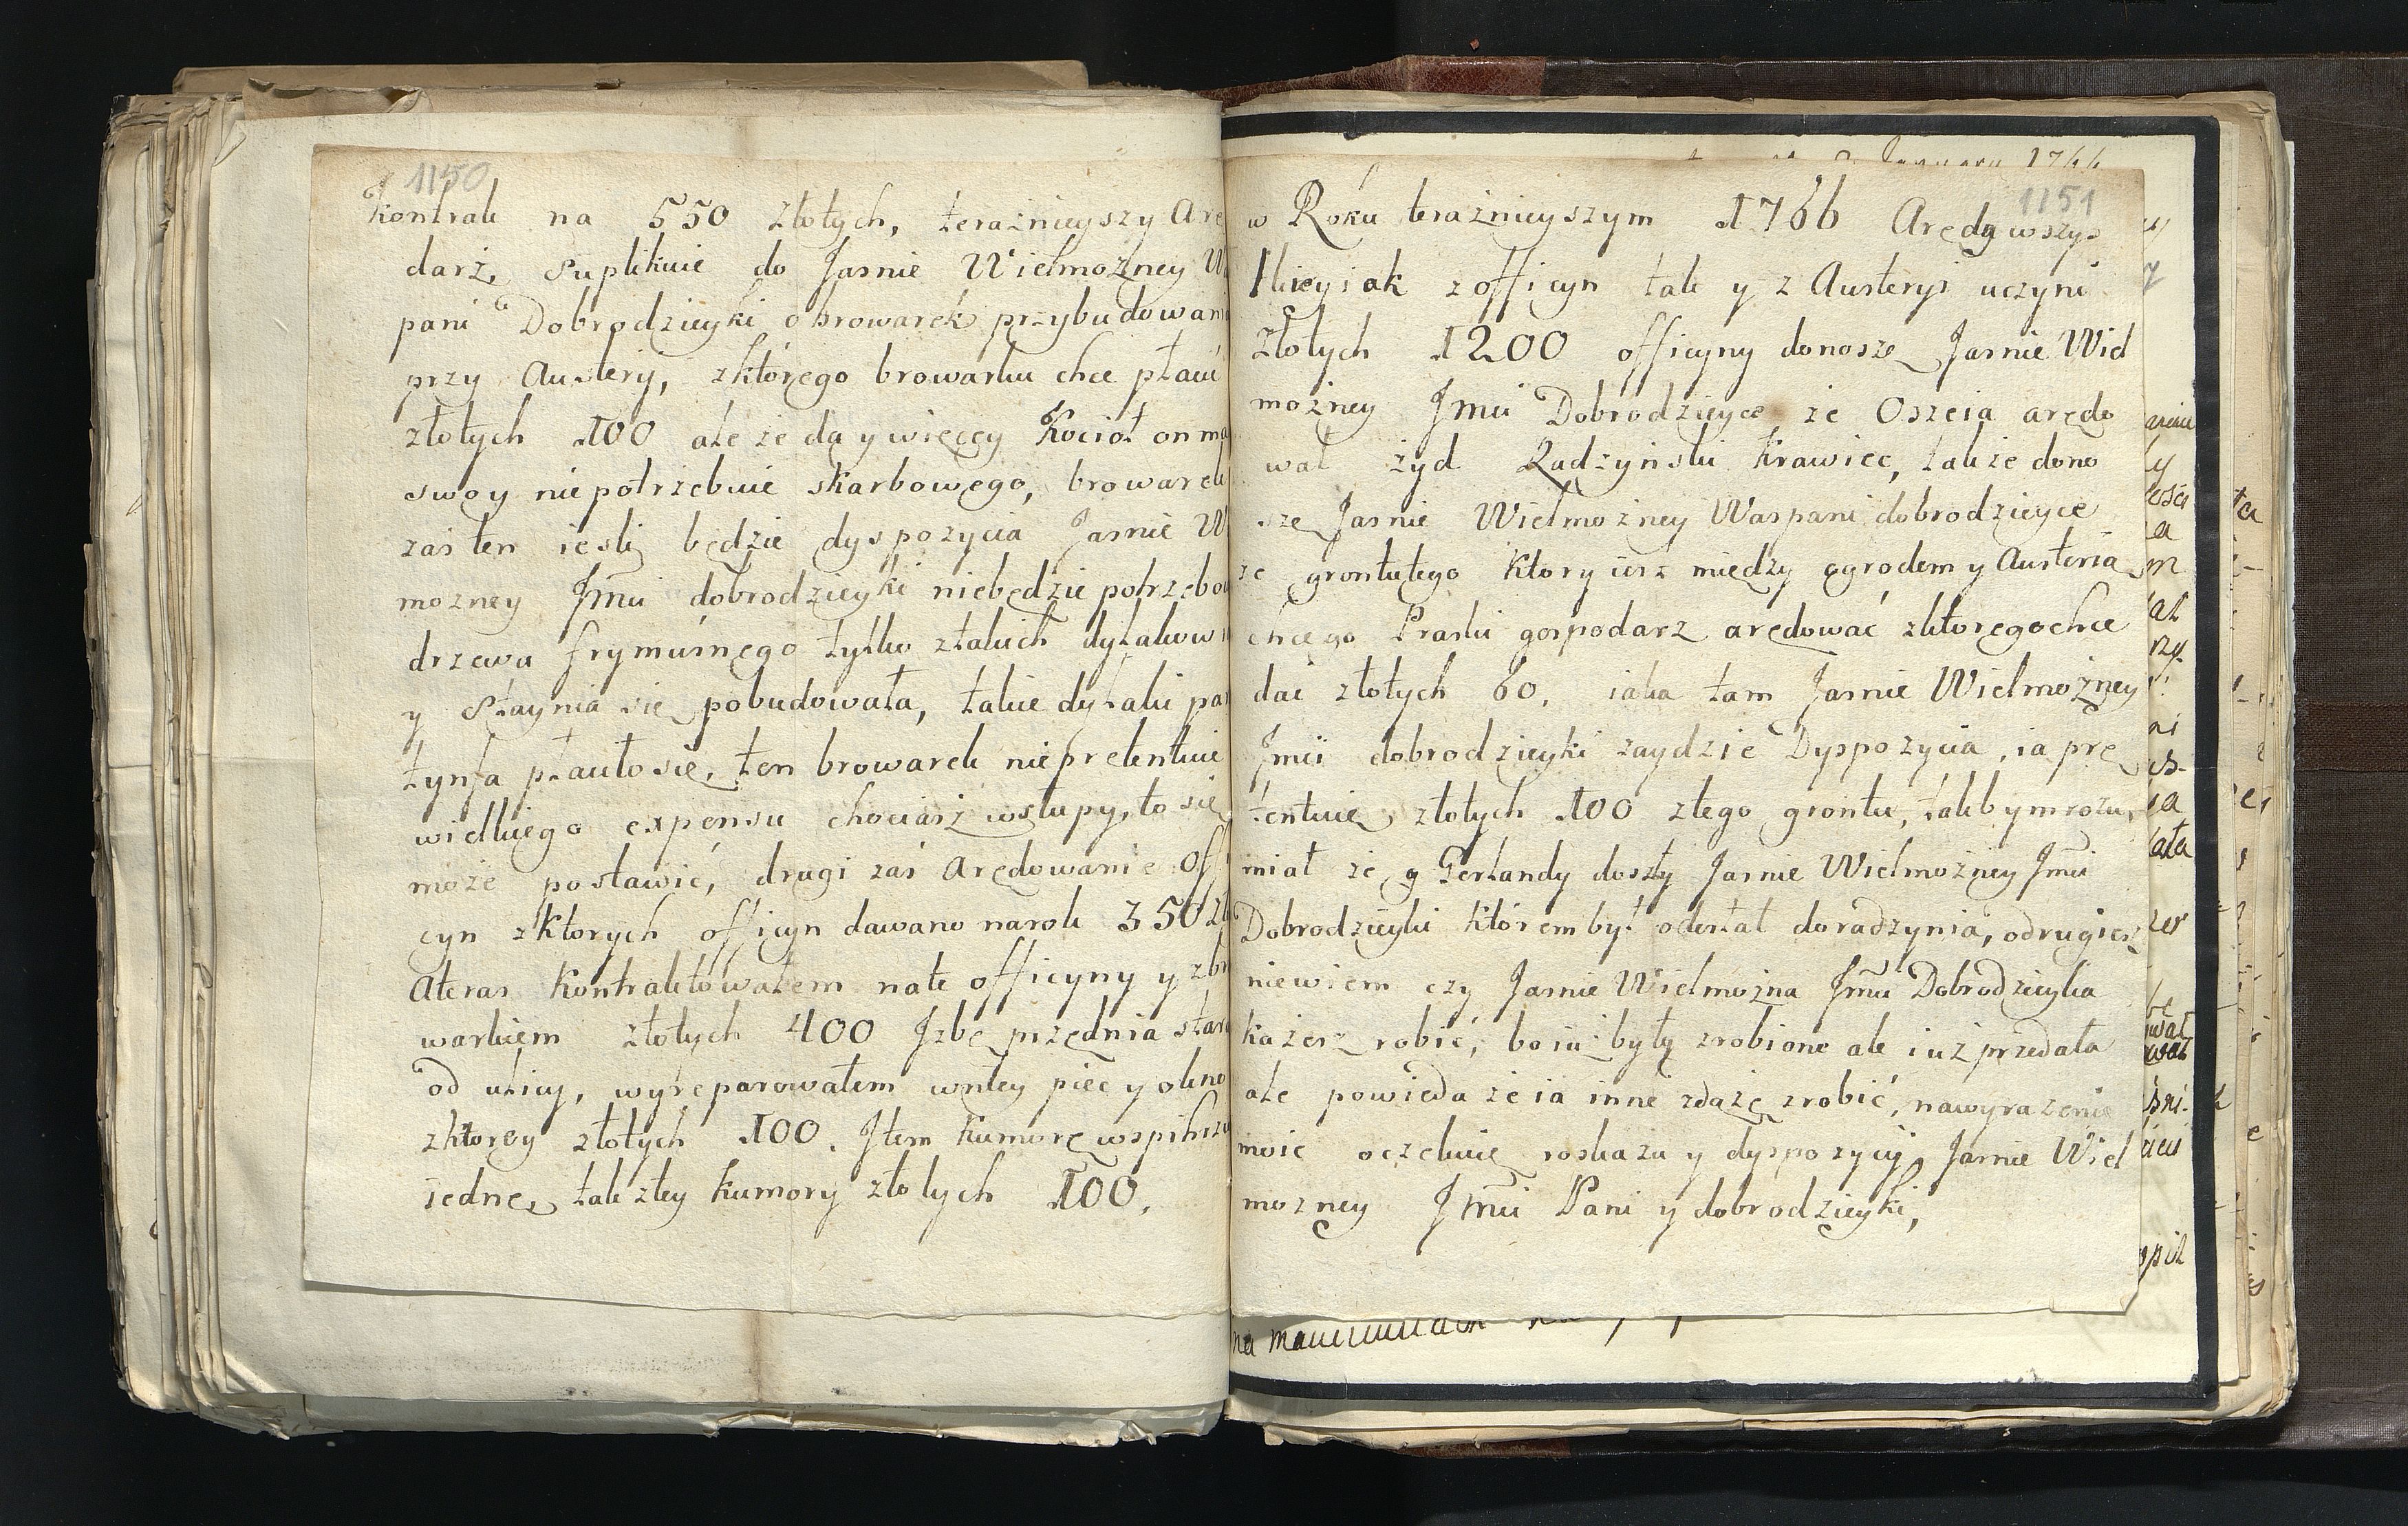 1150
Kontrak na 550 złotych, teraznieyszy Arę
darz, Suplikuie do Jasnie Wielmozney W
pani Dobrodzieyki o browarek przybudowani
przy Austeryi, zktorego browarku chce płacić
złotych 100 ale ze da y więcey Kocioł on ma
swoy niepotrzebuie skarbowego, browarek
zas ten iesli będzie dyspozycia Jasnie W
mozney Jmci dobrodzieyki niebędzie potrzebow
drzewa frymusnego tylko ztakich dytakow
y Staynia się pobudowała, takie dytaki pa
tynfa płaciło się, ten browarek niepretenduie
wielkiego expensu chociasz wstupy, to się
może postawić, drugi zaś Arędowanie Offi
cyn zktorych officyn dawano narok 350 zł
Ateras Kontraktowałem nate officyny y zbro
warkiem złotych 400 Jzbę przednia star
od ulicy, wyreparowałem wniey piec y okno
zktorey złotych 100. Jtem Kumorę wspihrzu
iednę, tak ztey kumory złotych 100.
1151
w Roku teraznieyszym 1766 Arędą wszys
tkieyiak zofficyn tak y z Austeryi uczyni
złotych 1200 officyny donoszę Jasnie Wiel
mozney Jmci Dobrodzieyce ze Oszcia arędo
wał żyd Radzynski Krawiec, takze dono
szę Jasnie Wielmozney Waspani dobrodzieyce
ze grontutego Ktory iest między ogrodem y Austeria
chcego Praski gospodarz arędować zktoregochce
dać złotych 60. iaka tam Jasnie Wielmożney
Jmci dobrodzieyki zaydzie Dyspozycia, ia prę
tentuię złotych 100 ztego grontu, takbymrozu
miał ze g Gerlandy doszły Jasnie Wielmożney Jmci
Dobrodzieyki Którem był odesłał doradzynia, odrugiesz
niewiem czy Jasnie Wielmożna Jmci Dobrodzieyka
każesz robić, boiuż były zrobione ale iuż przedała
ale powieda że ia inne zdążę zrobić, nawyrazenie
moie oczekuię roskazu y dyspozycyi Jasnie Wiel
mozney Jmci Pani y dobrodzieyki,